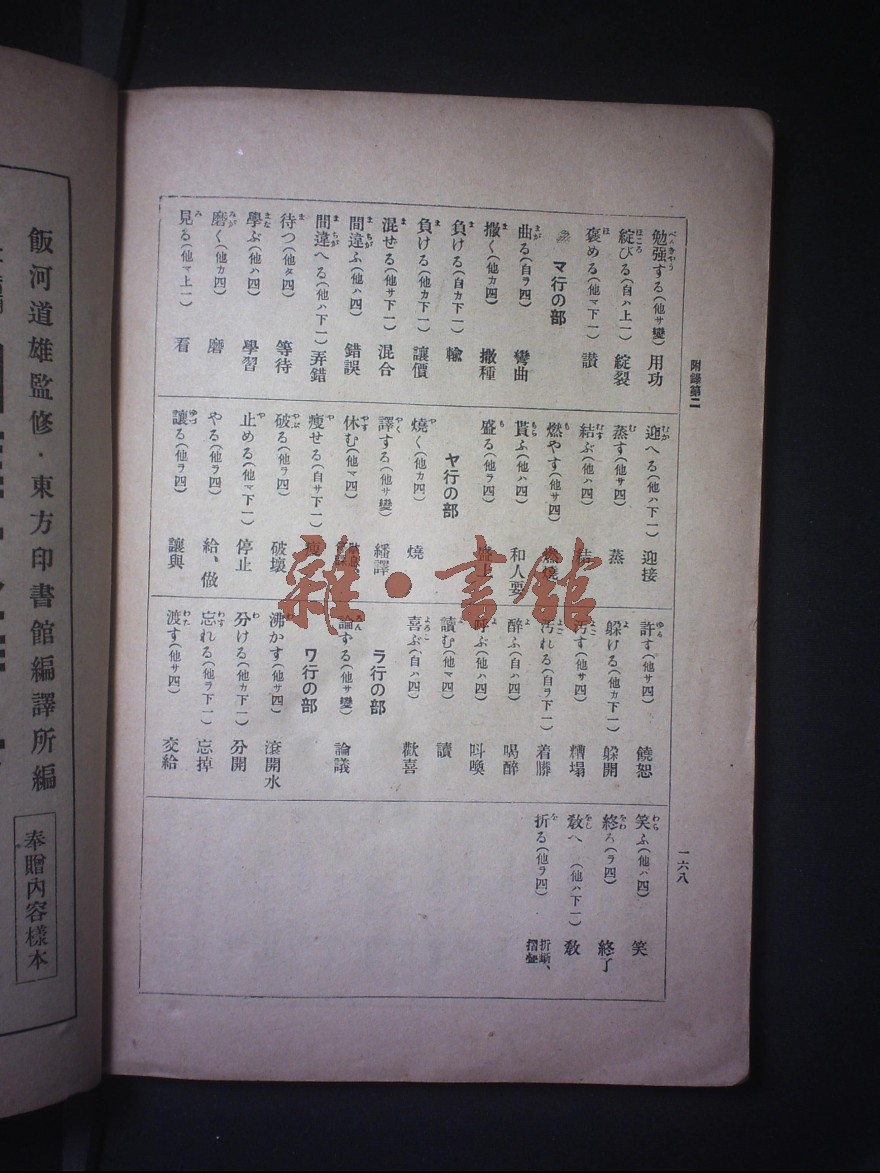 附錄第二
一六八
勉强する(他サ變) 用功
綻びる(自ハ上一) 綻裂
褒める(他マ下一) 讃
マ行の部
曲る(自ラ四) 彎曲
撒く(他カ四) 撒種
負ける(自カ下一) 輸
負ける(他カ下一) 讓價
混ぜる(他サ下一) 混合
間違ふ(他ハ四) 錯誤
間違へる(他ハ下一) 弄錯
待つ(他タ四) 等待
學ぶ(他ハ四) 學習
磨く(他カ四) 磨
見る(他マ上一) 看
迎へる(他ハ下一) 迎接
蒸す(他サ四) 蒸
結ぶ(他ハ四) 結
燃やす(他サ四) 燃燒
貰ふ(他ハ四) 和人要
盛る(他ラ四) 盛上
ヤ行の部
燒く(他カ四) 燒
譯する(他サ變) 繙譯
休む(他マ四)
瘦せる(自サ下一) 瘦
破る(他ラ四) 破壞
止める(他マ下一) 停止
やる(他ラ四) 給、做
讓る(他ラ四) 讓與
許す(他サ四) 饒恕
躲ける(他カ下一) 躲開
汚す(他サ四) 糟塌
汚れる(自ラ下一) 着髒
醉ふ(自ハ四) 喝醉
呼ぶ(他ハ四) 呌喚
讀む(他マ四) 讀
喜ぶ(自ハ四) 歡喜
ラ行の部
論ずる(他サ變) 論議
ワ行の部
沸かす(他サ四) 滾開水
分ける(他カ下一) 分開
忘れる(他ラ下一) 忘掉
渡す(他サ四) 交給
笑ふ(他ハ四) 笑
終る(ラ四) 終了
敎へ (他ハ下一) 敎
折る(他ラ四) 折斷、摺疊
飯河道雄監修・東方印書館編譯所編
奉贈內容樣本
雜・書館